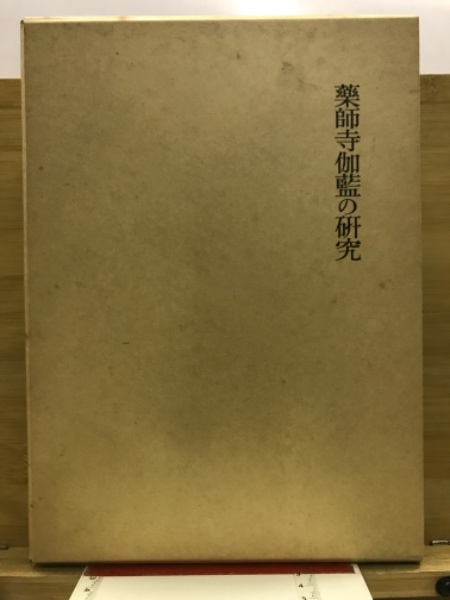 薬師寺伽藍の研究